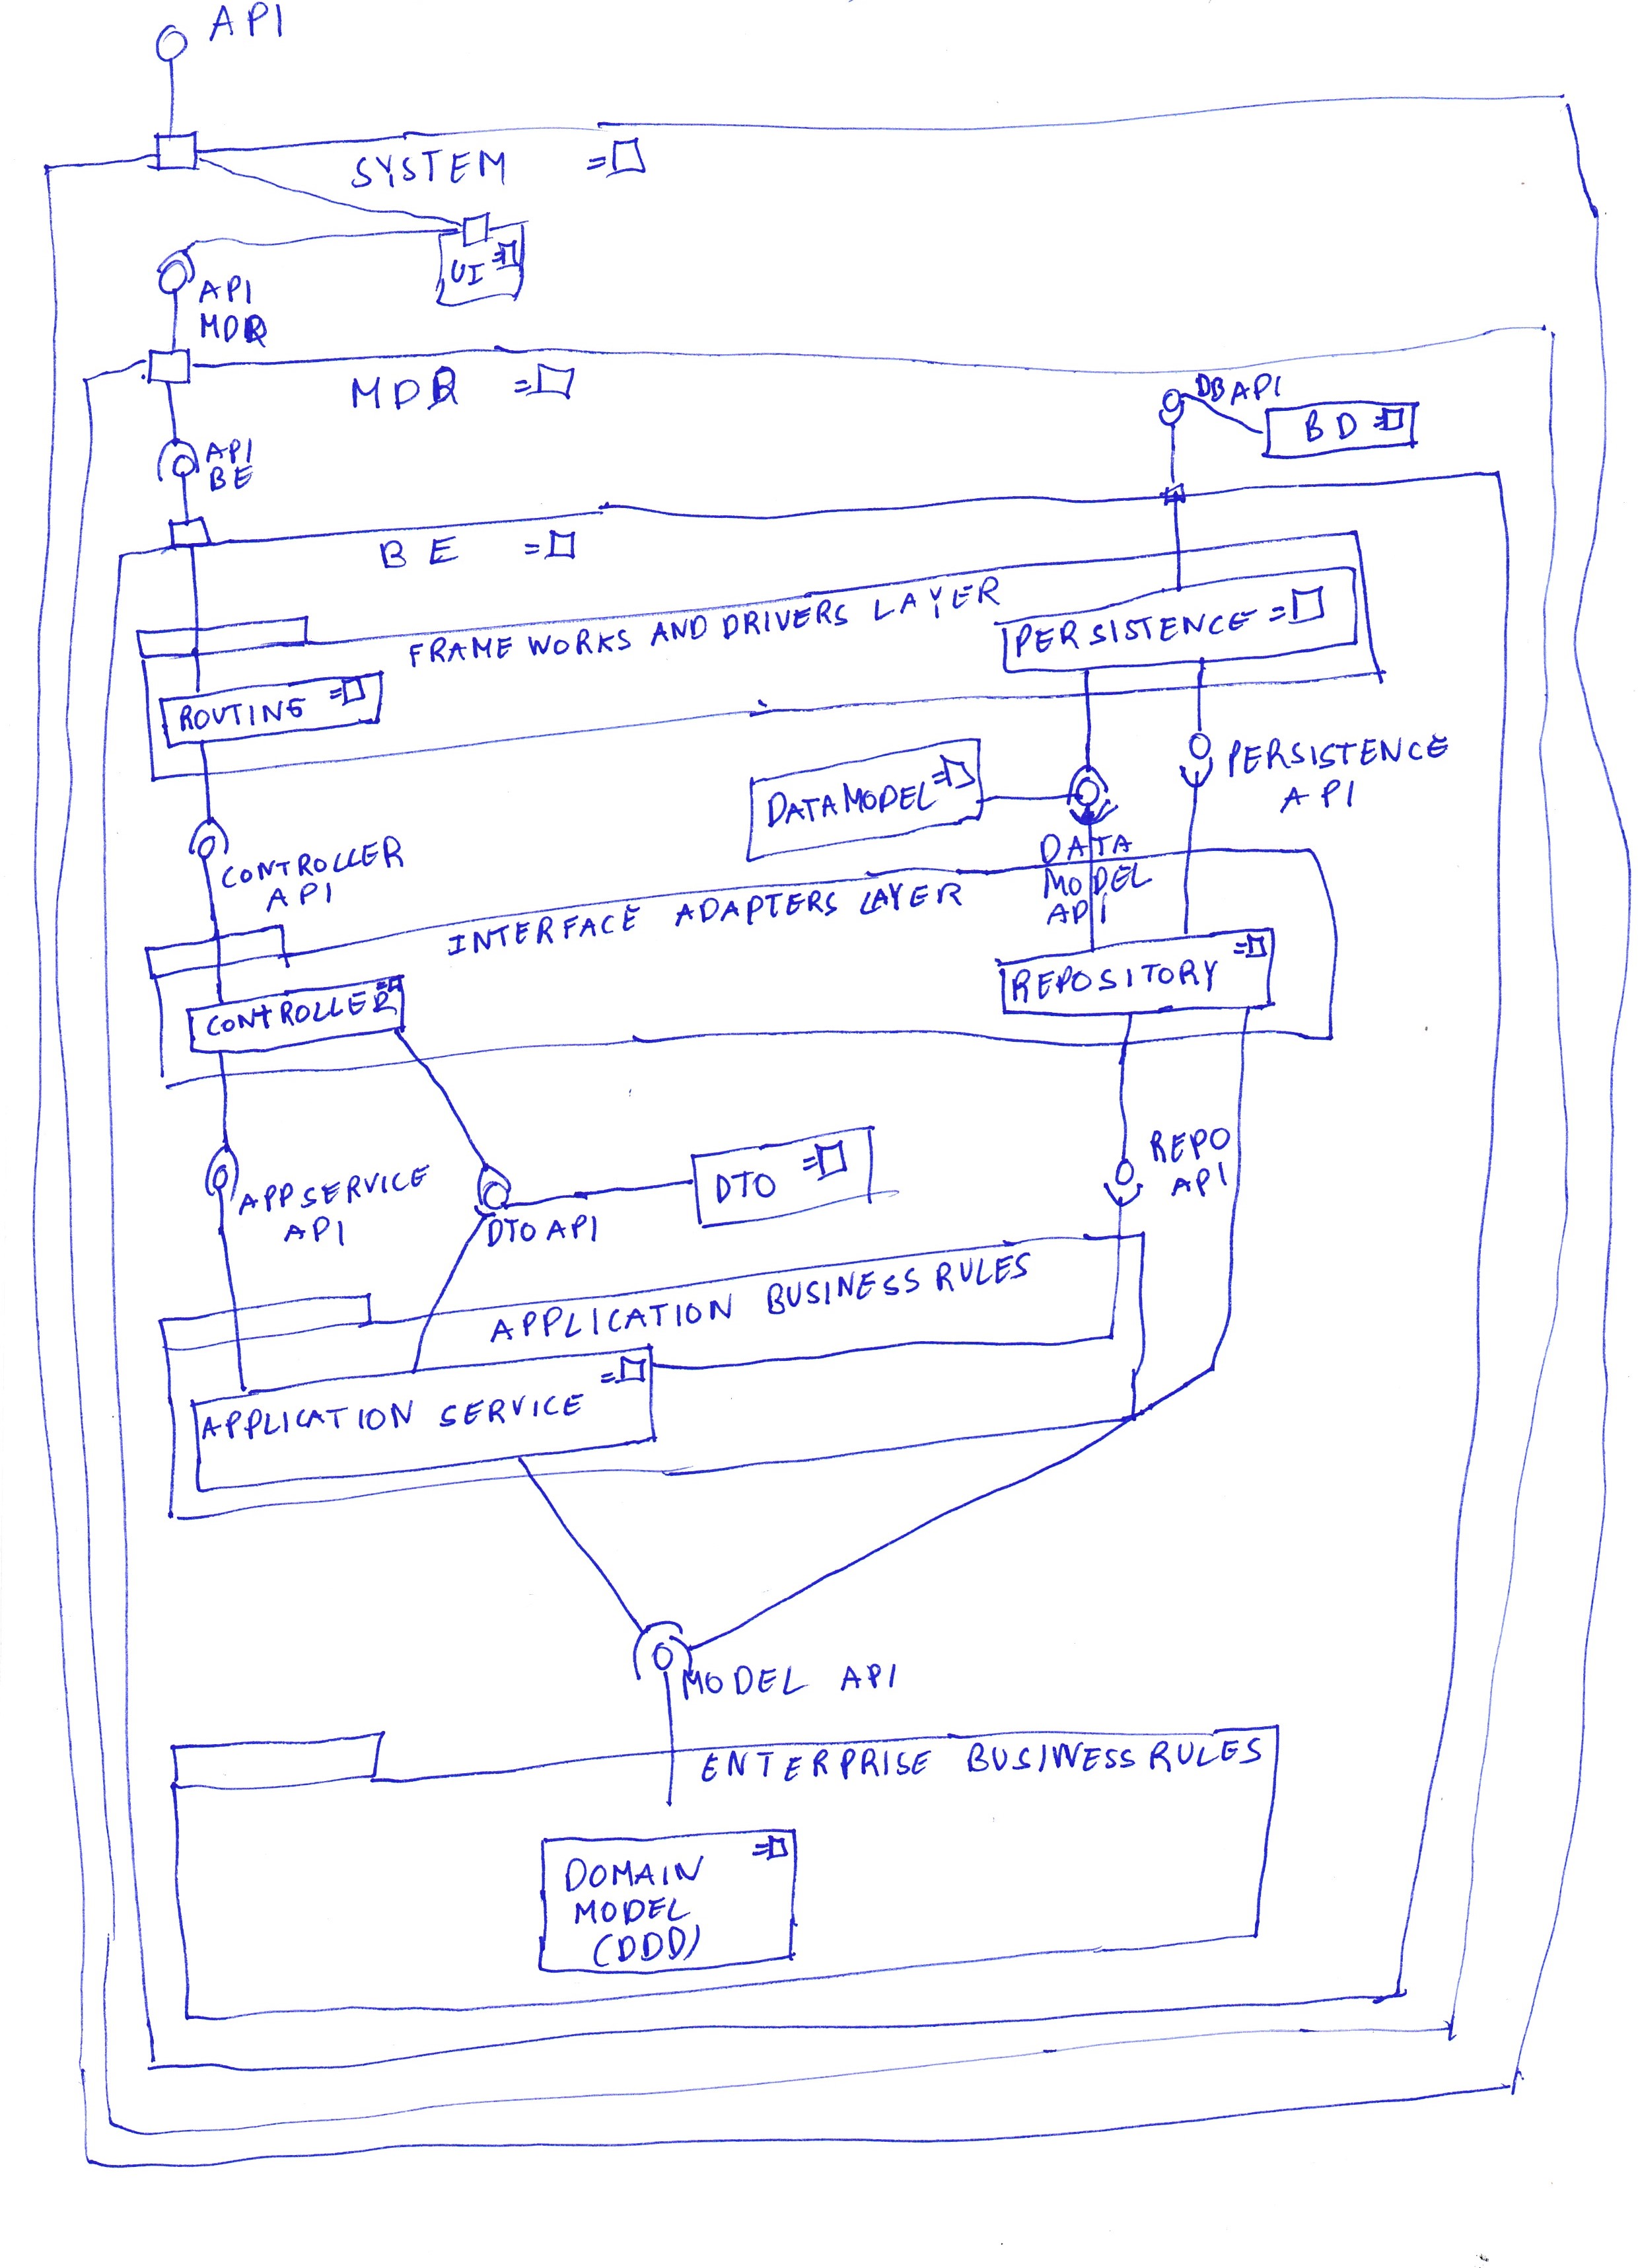 API
SYSTEM
UI
API
MDR
MDR
DB API
BD
API
BE
BE
FRAMEWORKS AND DRIVERS LAYER
PERSISTENCE
ROUTING
PERSISTENCE
API
DATAMODEL
DATA
MODEL
API
CONTROLLER
API
INTERFACE ADAPTERS LAYER
REPOSITORY
CONTROLLER
REPO
API
APPSERVICE
API
DTO
DTO API
APPLICATION BUSINESS RULES
APPLICATION SERVICE
MODEL API
ENTERPRISE BUSINESS RULES
DOMAIN
MODEL
(DDD)